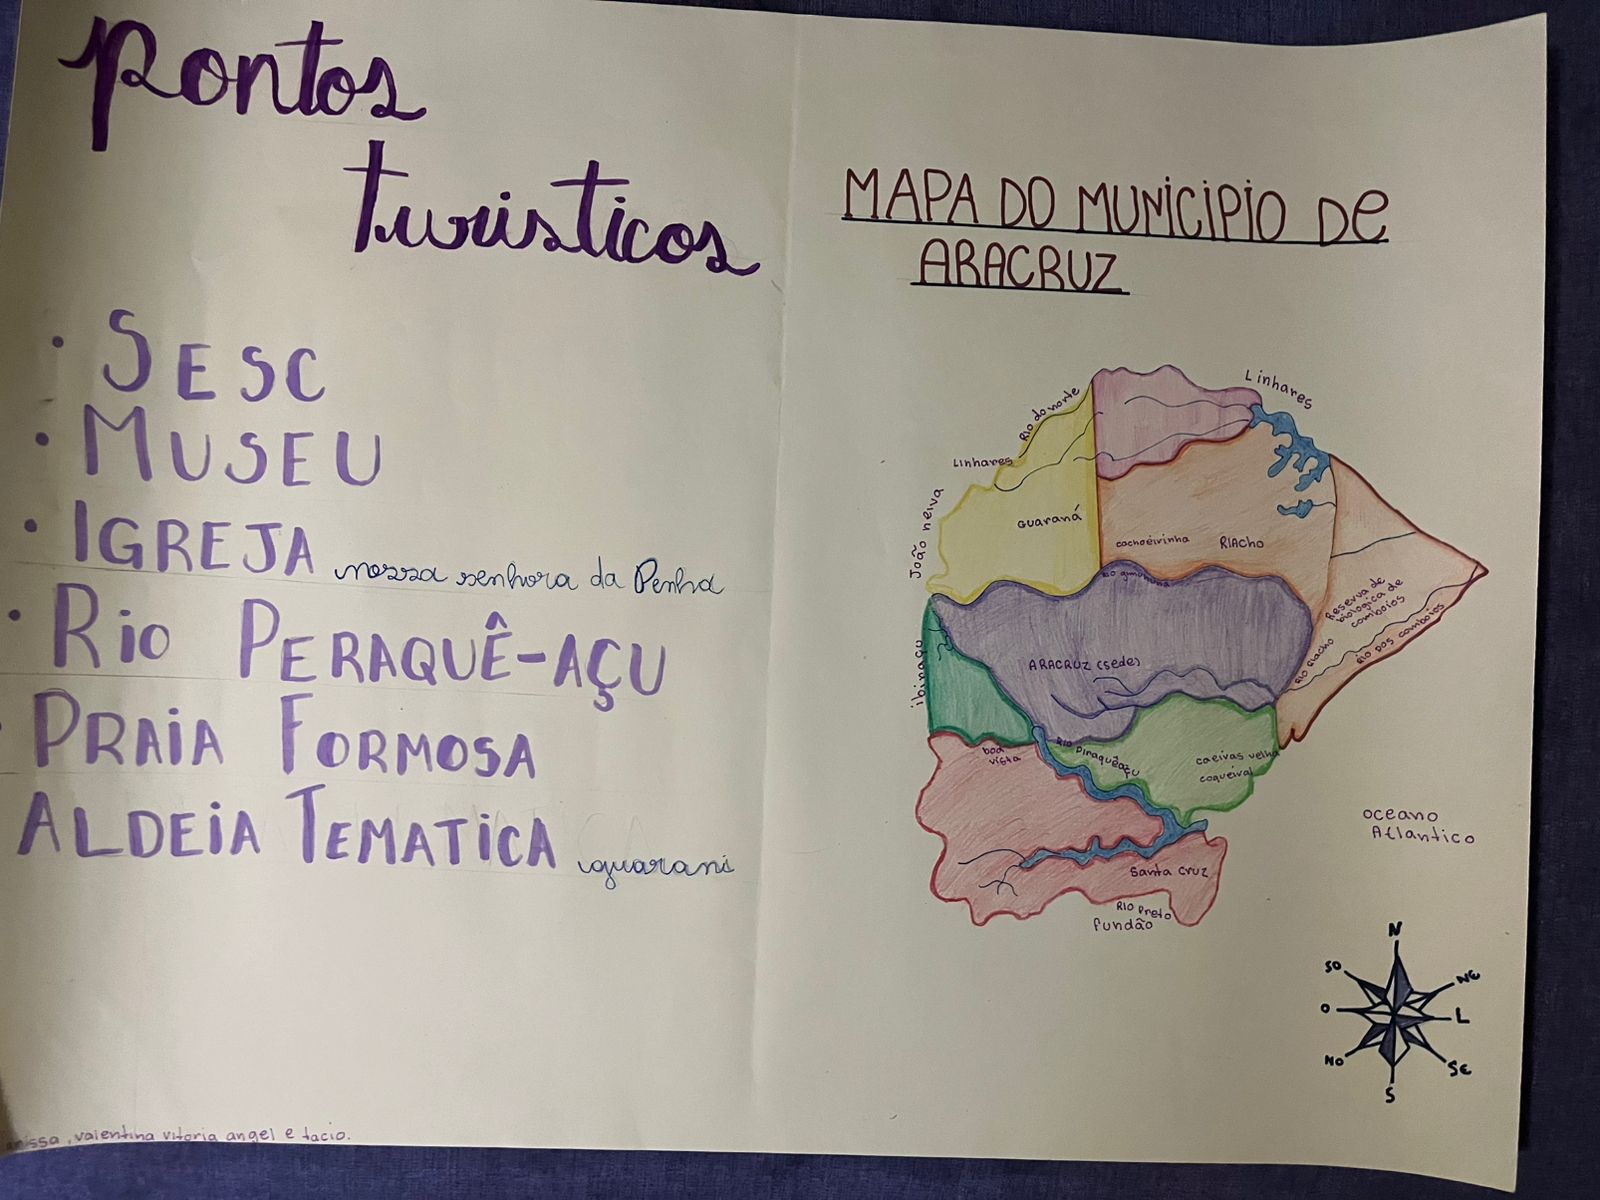 Pontos
turisticos
• SESC
• MUSEU
• IGREJA nossa senhora da Penha
• Rio PERAQUÊ-AÇU
PRAiA FORMOSA
ALDEiA TEMATiCA guarani
valentina vitoria angel e tacio.
MAPA DO MUNICIPIO De
ARACRUZ
Linhares
Rio do norte
Linhares
João neiva
Guaraná
cachoeirinha RIAcho
Reserva de
biologica de
comboios
Rio Riacho
Rio dos comboios
ARACRUZ (sede)
ibiraçu
boa
vista
Rio Piraquêaçu
caeiras velha
coqueiral
oceano
Atlantico
Santa cruz
Rio Preto
fundão
N
SO NE
O L
NO SE
S